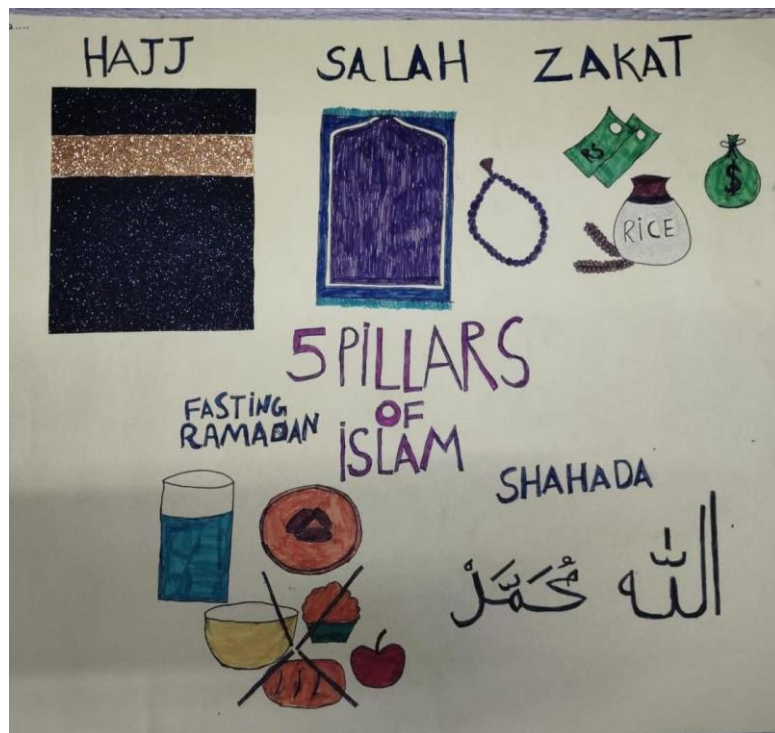 HAJJ
SALAH
ZAKAT
RS
$
RICE
5 PILLARS
OF
ISLAM
FASTING
RAMADAN
SHAHADA
اللّٰه مُحَمَّد